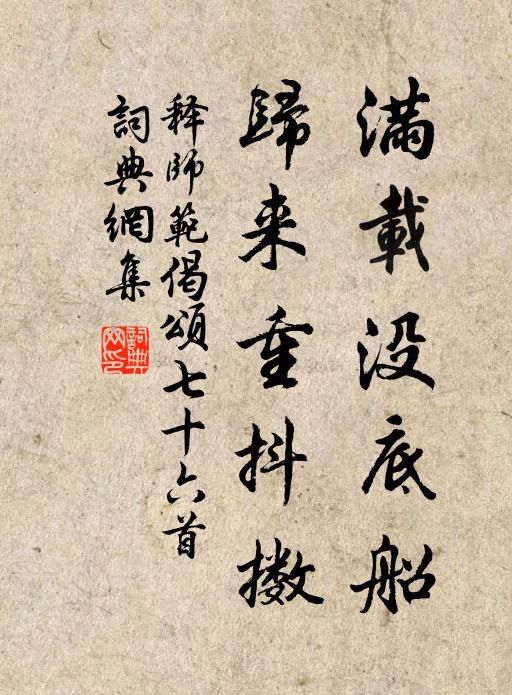 滿載没底船
歸来重抖擻
释師範偈頌七十六首
詞典網集
詞典网印